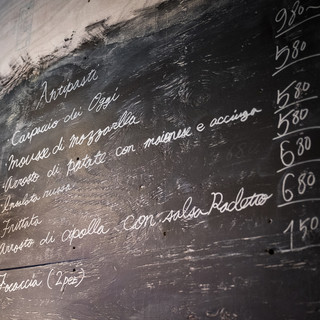 Antipasti
Carpaccio dei Oggi 980-
Mousse di mozzarella 580
Arrosto di patate con maionese e acciuga 580
russa 580
Frittata 680
Arrosto di cipolla con salsa 680
Focaccia (2pez) 150